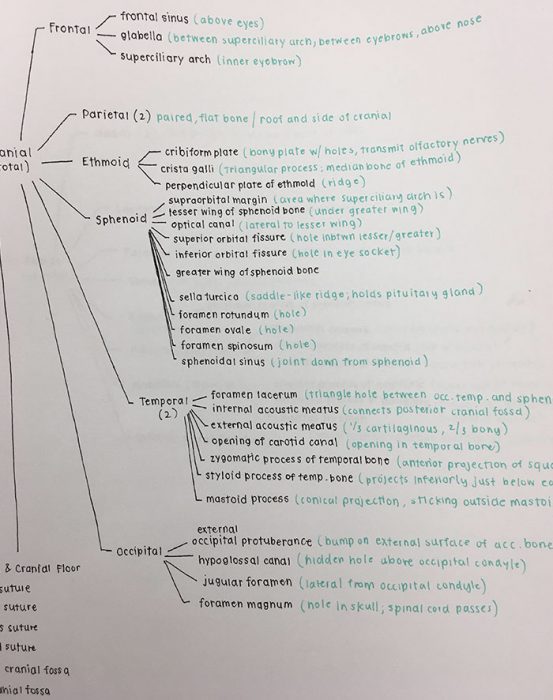 Frontal
frontal sinus (above eyes)
glabella (between superciliary arch, between eyebrows, above nose
superciliary arch (inner eyebrow)
Parietal (2) paired, flat bone / roof and side of cranial
anial
otal)
Ethmoid
cribiform plate (bony plate w/ holes, transmit olfactory nerves)
crista galli (triangular process; median bone of ethmoid)
perpendicular plate of ethmoid (ridge)
Sphenoid
supraorbital margin (area where superciliary arch is)
lesser wing of sphenoid bone (under greater wing)
optical canal (lateral to lesser wing)
superior orbital fissure (hole inbtwn lesser/greater)
inferior orbital fissure (hole in eye socket)
greater wing of sphenoid bone
sella turcica (saddle-like ridge; holds pituitary gland)
foramen rotundum (hole)
foramen ovale (hole)
foramen spinosum (hole)
sphenoidal sinus (joint down from sphenoid)
Temporal
(2)
foramen lacerum (triangle hole between occ. temp. and sphen
internal acoustic meatus (connects posterior cranial fossa)
external acoustic meatus (1/3 cartilaginous, 2/3 bony)
opening of carotid canal (opening in temporal bone)
zygomatic process of temporal bone (anterior projection of squa
styloid process of temp. bone (projects inferiorly just below ea
mastoid process (conical projection, sticking outside mastoi
Occipital
external
occipital protuberance (bump on external surface of acc. bone
hypoglossal canal (hidden hole above occipital condyle)
jugular foramen (lateral from occipital condyle)
foramen magnum (hole in skull; spinal cord passes)
& Cranial Floor
suture
suture
s suture
l suture
cranial fossa
nial fossa